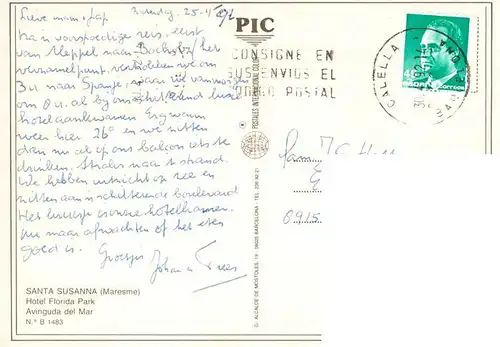 Lieve mam + Jap Zaterdag. 25-4
Na 'n voorspoedige reis, eerst
van Meppel naar Bocholt het
verzamelpunt, vertrokken we om
3 u naar Spanje, waar wij vanmorgen
om 8 u al bij ons schitterend luxe
hotel aankwamen. Erg warm
weer hier 26° en we zitten
dan nu al op ons balcon iets te
drinken. Straks naar 't strand.
We hebben uitzicht op zee en
zitten aan 'n schitterende boulevard
Het is onze hotelkamer.
Nu maar afwachten of het eten
goed is.
Groetjes
Johan en Trees
SANTA SUSANNA (Maresme)
Hotel Florida Park
Avinguda del Mar
N.º B 1483
PIC
CONSIGNE EN
SUS ENVIOS EL
CODIGO POSTAL
POSTALES INTERNATIONAL COLOR
C/. ALCALDE DE MOSTOLES, 19 08025 BARCELONA - TEL. 236 92 21
CALELLA
correos
Fam
0915